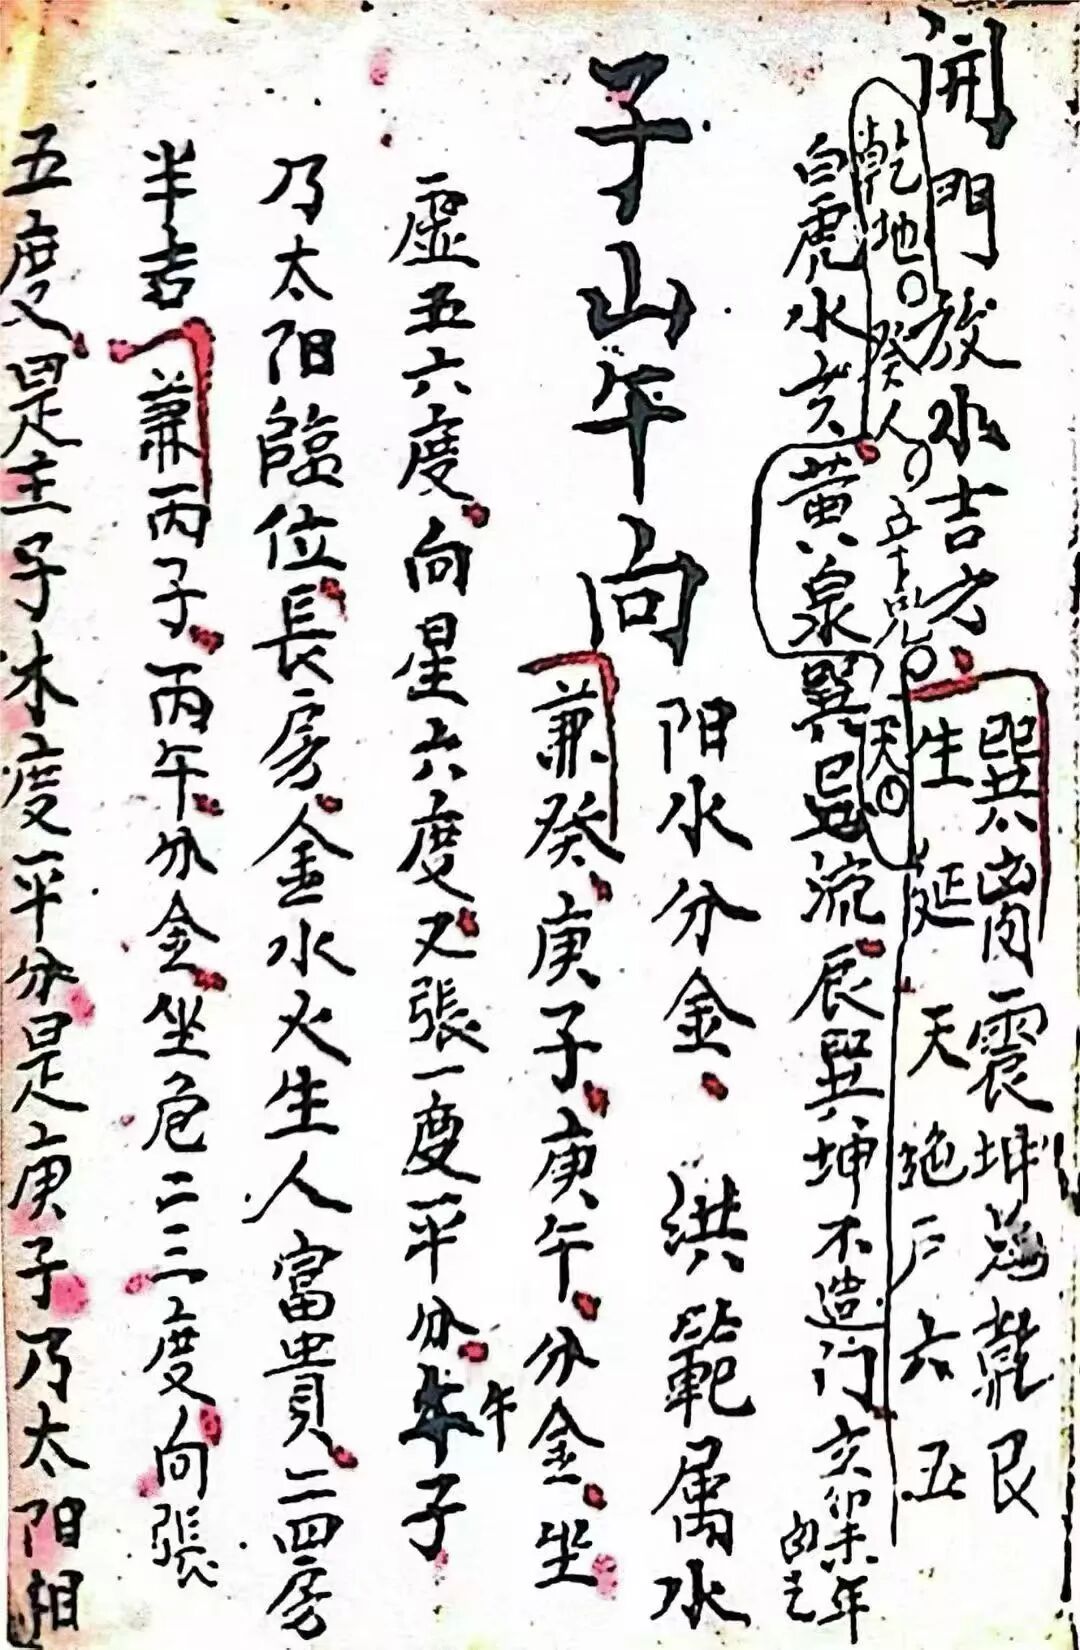 開門放水吉方
巽离震坤乾艮
生延天絶六五
乾地癸人
天
白虎水亥黃泉巽巳流辰巽坤不造门
亥卯未年
子山午向阳水分金洪範属水
兼癸庚子庚午分金坐
虛五六度向星六度又張一度平分午子
乃太阳臨位長房金水火生人富貴二四房
半吉兼丙子丙午分金坐危二三度向張
五度是主子木度平分是庚子乃太阳相